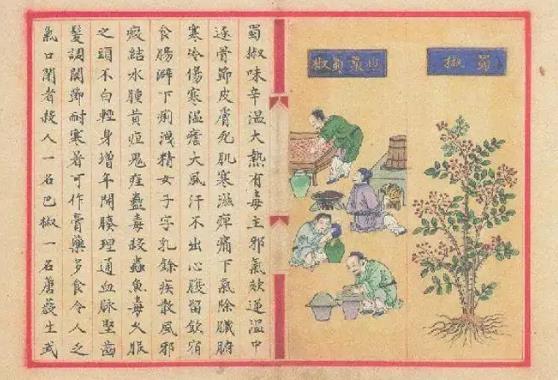 蜀椒
炮製蜀椒
蜀椒味辛温大熱有毒主邪氣欬逆温中
逐骨節皮膚死肌寒濕痹痛下氣除臟腑
寒冷傷寒温瘧大風汗不出心腹留飲宿
食腸澼下痢洩精女子字乳餘疾散風邪
瘕結水腫黄疸鬼疰蠱毒殺蟲魚毒久服
之頭不白輕身增年開腠理通血脉堅齒
髮調關節耐寒暑可作膏藥多食令人乏
氣口閉者殺人一名巴椒一名蓎藙生武